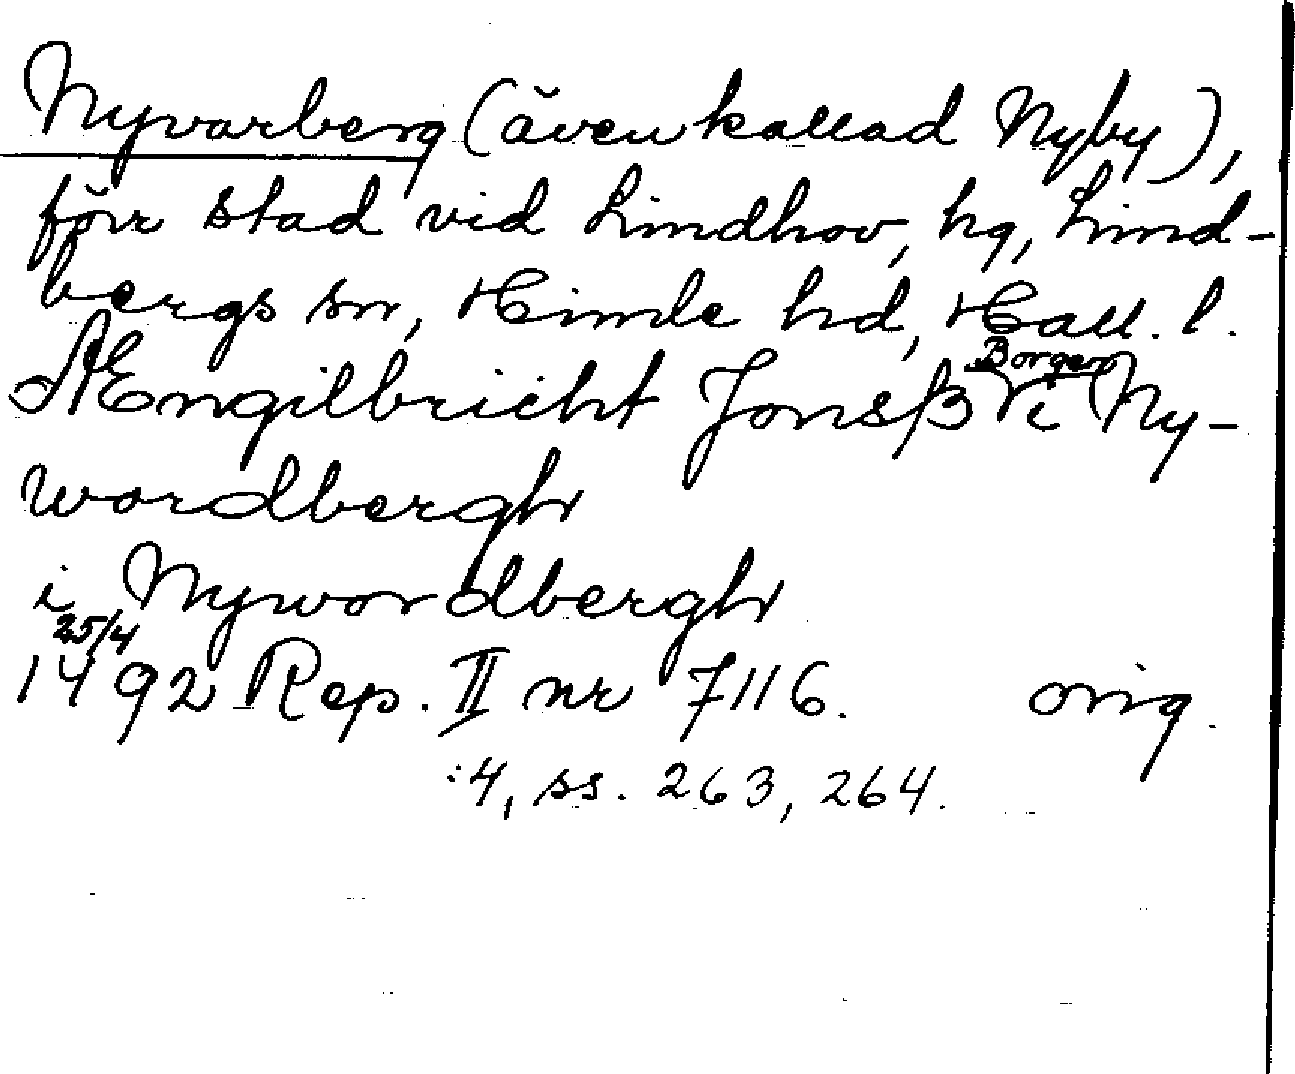 Nyvarberg (även kallad Nyby),
förr stad vid Lindhov, hg, Lind-
bergs sn, Himle hd, Hall. l.
Ængilbricht Jonsß Borger i Ny-
wordbergh
i Nywordbergh
25/4
1492 Rep. II nr 7116. orig.
:4, ss. 263, 264.